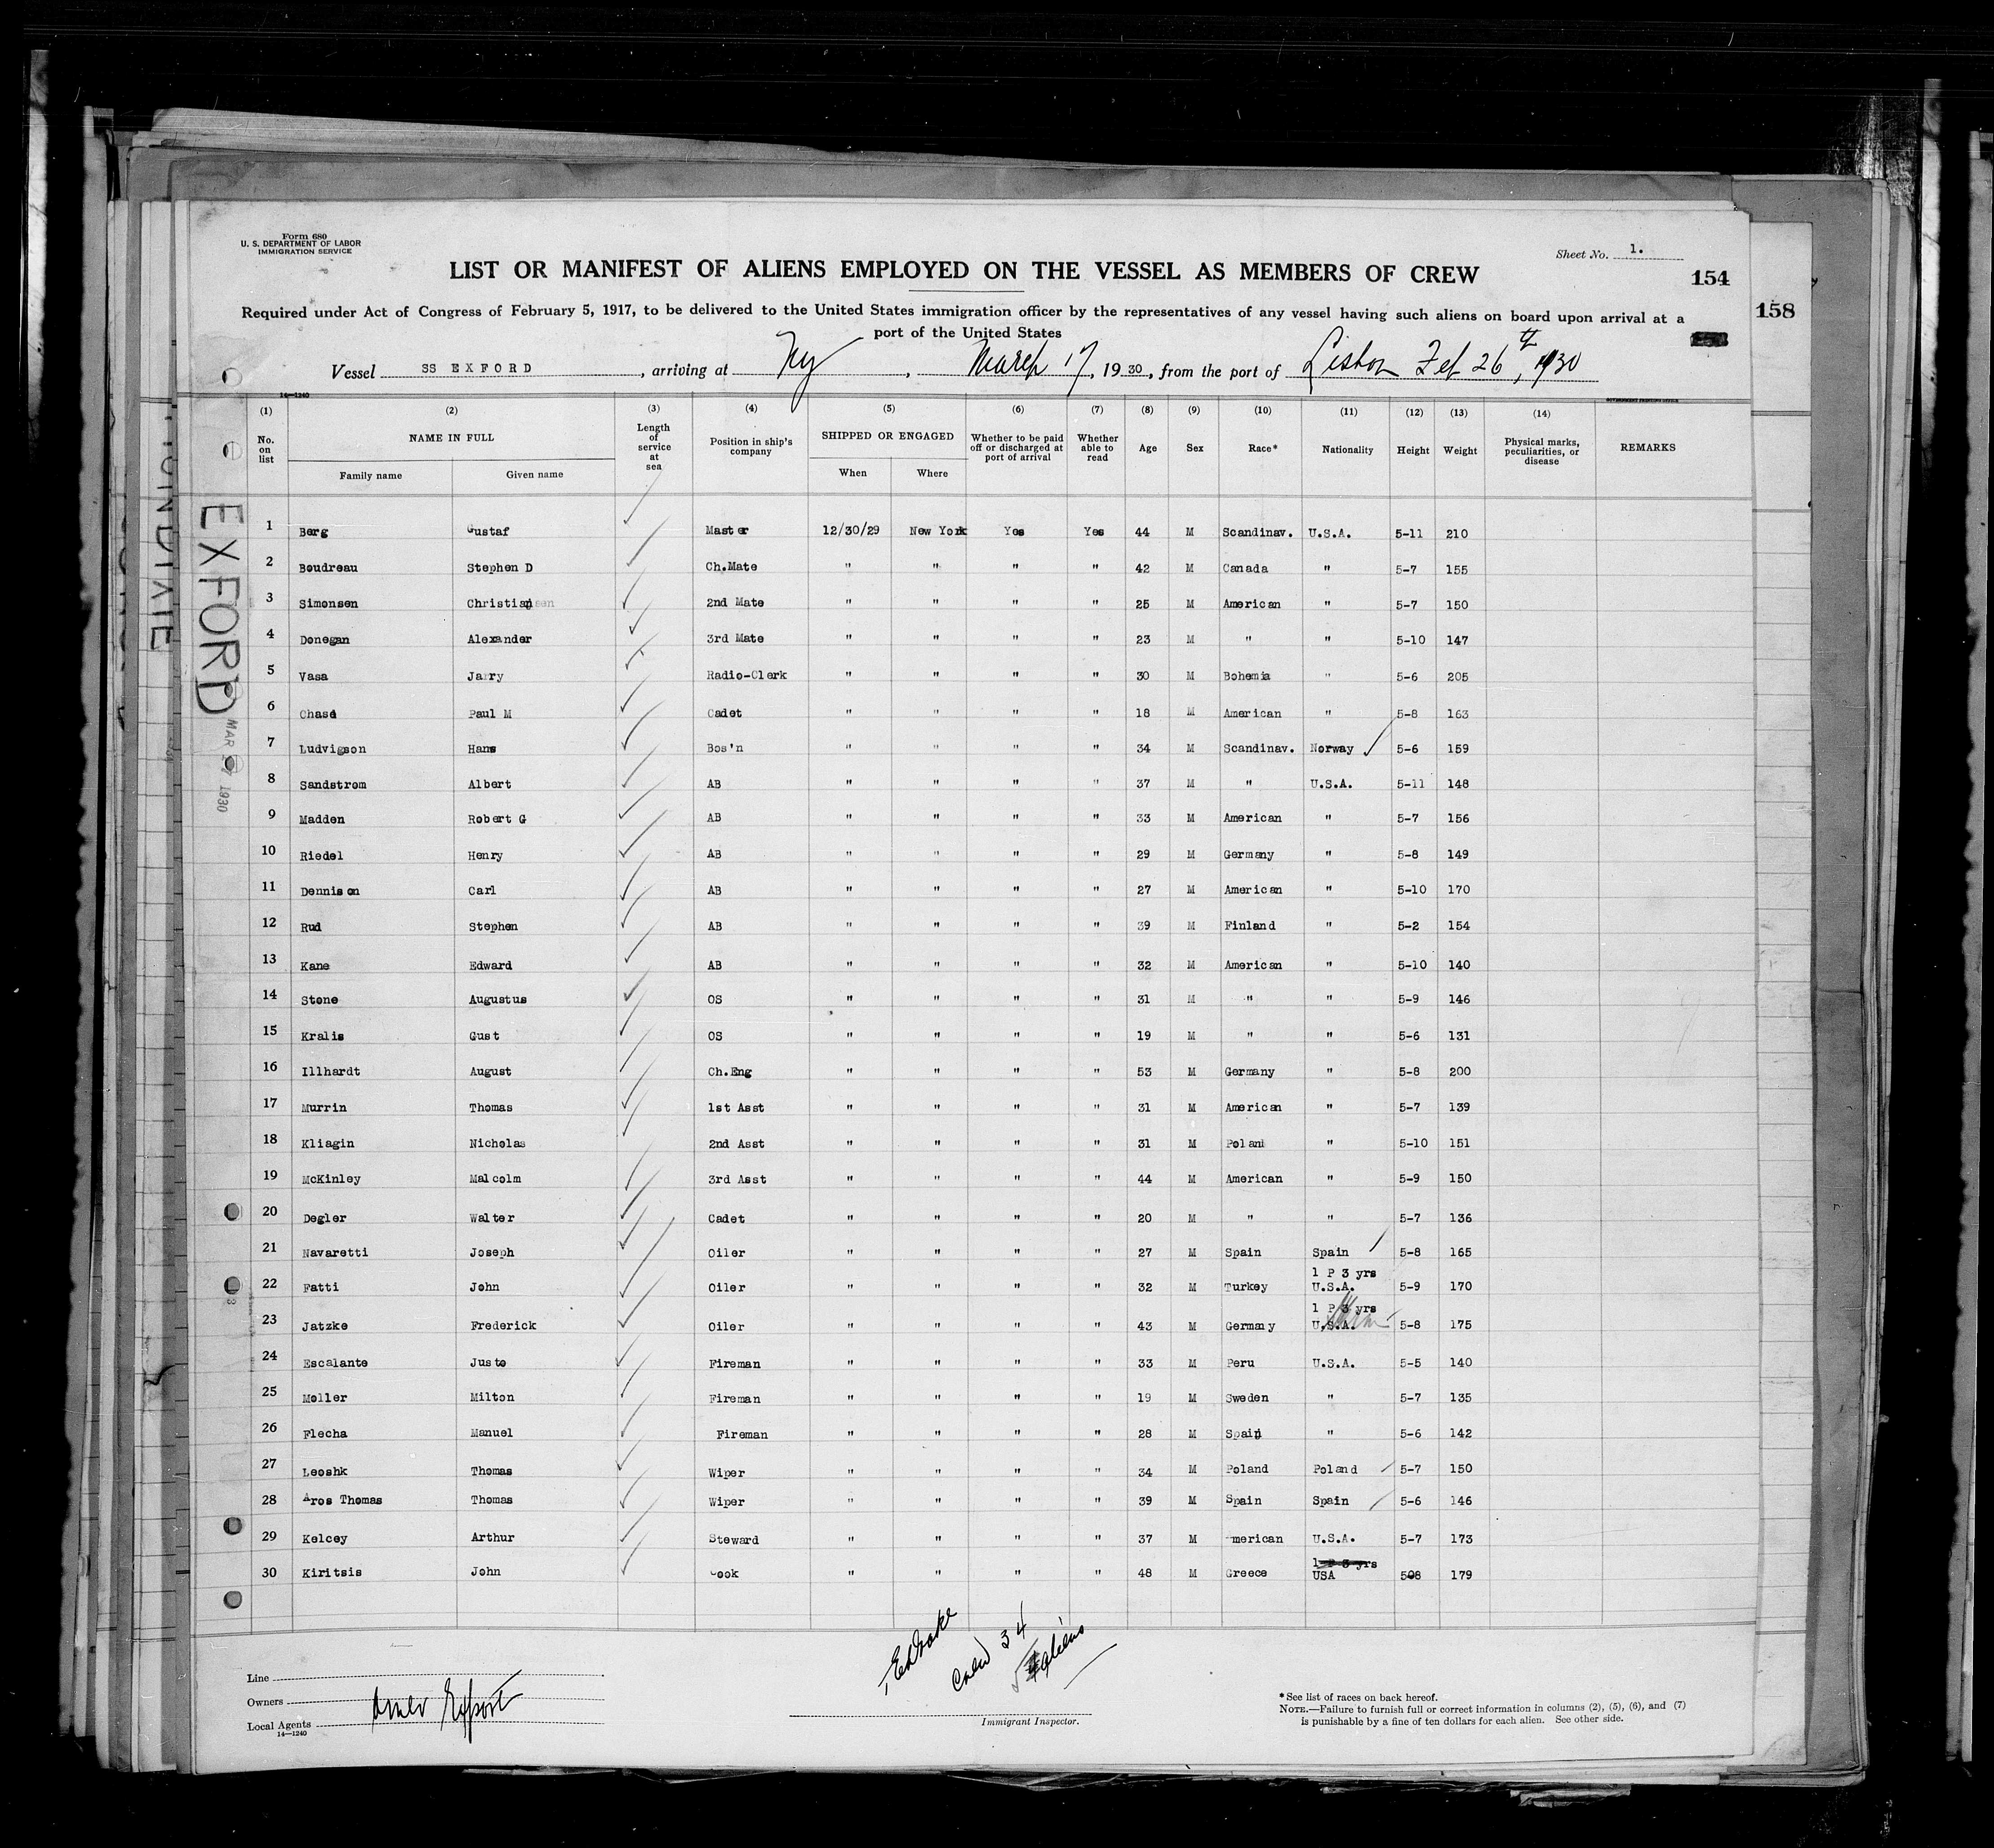 Form 680
U. S. DEPARTMENT OF LABOR
IMMIGRATION SERVICE
Sheet No. 1.
LIST OR MANIFEST OF ALIENS EMPLOYED ON THE VESSEL AS MEMBERS OF CREW
154
158
Required under Act of Congress of February 5, 1917, to be delivered to the United States immigration officer by the representatives of any vessel having such aliens on board upon arrival at a
port of the United States
Vessel SS EXFORD, arriving at Ny, March 17, 1930, from the port of Lisbon Feb 26th, 1930
14—1240
GOVERNMENT PRINTING OFFICE
(1) (2) (3) (4) (5) (6) (7) (8) (9) (10) (11) (12) (13) (14)
No. on list NAME IN FULL Length of service at sea Position in ship's company SHIPPED OR ENGAGED Whether to be paid off or discharged at port of arrival Whether able to read Age Sex Race* Nationality Height Weight Physical marks, peculiarities, or disease REMARKS
Family name Given name When Where
1 Berg Gustaf Master 12/30/29 New York Yes Yes 44 M Scandinav. U.S.A. 5-11 210
2 Boudreau Stephen D Ch.Mate " " " " 42 M Canada " 5-7 155
3 Simonsen Christian 2nd Mate " " " " 25 M American " 5-7 150
4 Donegan Alexander 3rd Mate " " " " 23 M " " 5-10 147
5 Vasa Jarry Radio-Clerk " " " " 30 M Bohemia " 5-6 205
6 Chase Paul M Cadet " " " " 18 M American " 5-8 163
7 Ludvigson Hans Bos'n " " " " 34 M Scandinav. Norway 5-6 159
8 Sandstrom Albert AB " " " " 37 M " U.S.A. 5-11 148
9 Madden Robert G AB " " " " 33 M American " 5-7 156
10 Riedel Henry AB " " " " 29 M Germany " 5-8 149
11 Dennison Carl AB " " " " 27 M American " 5-10 170
12 Rud Stephen AB " " " " 39 M Finland " 5-2 154
13 Kane Edward AB " " " " 32 M American " 5-10 140
14 Stone Augustus OS " " " " 31 M " " 5-9 146
15 Kralis Gust OS " " " " 19 M " " 5-6 131
16 Illhardt August Ch.Eng " " " " 53 M Germany " 5-8 200
17 Murrin Thomas 1st Asst " " " " 31 M American " 5-7 139
18 Kliagin Nicholas 2nd Asst " " " " 31 M Poland " 5-10 151
19 McKinley Malcolm 3rd Asst " " " " 44 M American " 5-9 150
20 Degler Walter Cadet " " " " 20 M " " 5-7 136
21 Navaretti Joseph Oiler " " " " 27 M Spain Spain 5-8 165
1 P 3 yrs
22 Fatti John Oiler " " " " 32 M Turkey U.S.A. 5-9 170
1 P 3 yrs
23 Jatzke Frederick Oiler " " " " 43 M Germany U.S.A. 5-8 175
24 Escalante Juste Fireman " " " " 33 M Peru U.S.A. 5-5 140
25 Moller Milton Fireman " " " " 19 M Sweden " 5-7 135
26 Flecha Manuel Fireman " " " " 28 M Spain " 5-6 142
27 Leoshk Thomas Wiper " " " " 34 M Poland Poland 5-7 150
28 Aros Thomas Thomas Wiper " " " " 39 M Spain Spain 5-6 146
29 Kelcey Arthur Steward " " " " 37 M American U.S.A. 5-7 173
1 P 3 yrs
30 Kiritsis John Cook " " " " 48 M Greece USA 508 179
EXFORD
MAR 17 1930
Crew 34
aliens
Line
Owners
Local Agents Amer Export
14—1240
Immigrant Inspector.
* See list of races on back hereof.
NOTE.—Failure to furnish full or correct information in columns (2), (5), (6), and (7)
is punishable by a fine of ten dollars for each alien. See other side.